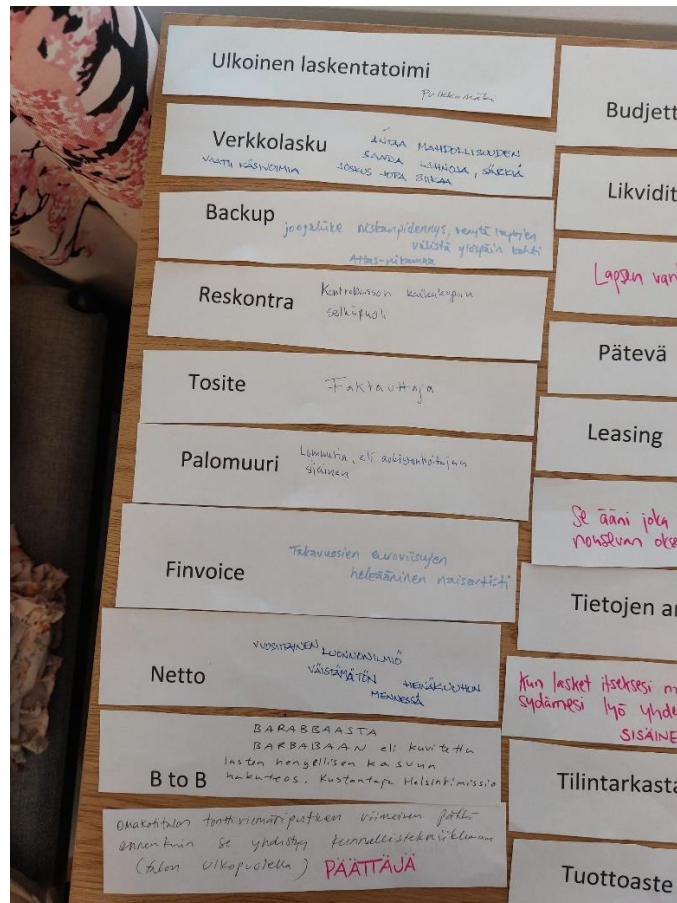 Ulkoinen laskentatoimi
pulkkamäki
Verkkolasku
ANTAA MAHDOLLISUUDEN
SAADA LAHNOJA, SÄRKIÄ
VAATII KÄSIVOIMIA
JOSKUS JOPA SIIKAA
Backup
joogaliike niskanpidennys, venytä lapojen
välistä ylöspäin kohti
Atlas-nikamaa
Reskontra
Kontrabasson kaikukopan
selkäpuoli
Tosite
Faktauttaja
Palomuuri
Lummuuria, eli
sijainen
Finvoice
Takavuosien euroviisujen
heleä-ääninen naisartisti
Netto
VUOSITTAINEN LUONNONILMIÖ
VÄISTÄMÄTÖN HEINÄKUUHUN
MENNESSÄ
B to B
BARABBAASTA
BARBABAAN eli kuvitettu
lasten hengellisen kasvun
hakuteos. Kustantaja Helsinkimissio
Omakotitalon tonttiviemäriputken viimeinen pätkä
ennenkuin se yhdistyy kunnallistekniikkaan
(talon ulkopuolella) PÄÄTTÄJÄ
Budjett
Likvidit
Lapsen van
Pätevä
Leasing
Se ääni joka
Tietojen a
Kun lasket itseksesi m
sydämesi lyö yhde
SISÄINE
Tilintarkasta
Tuottoaste